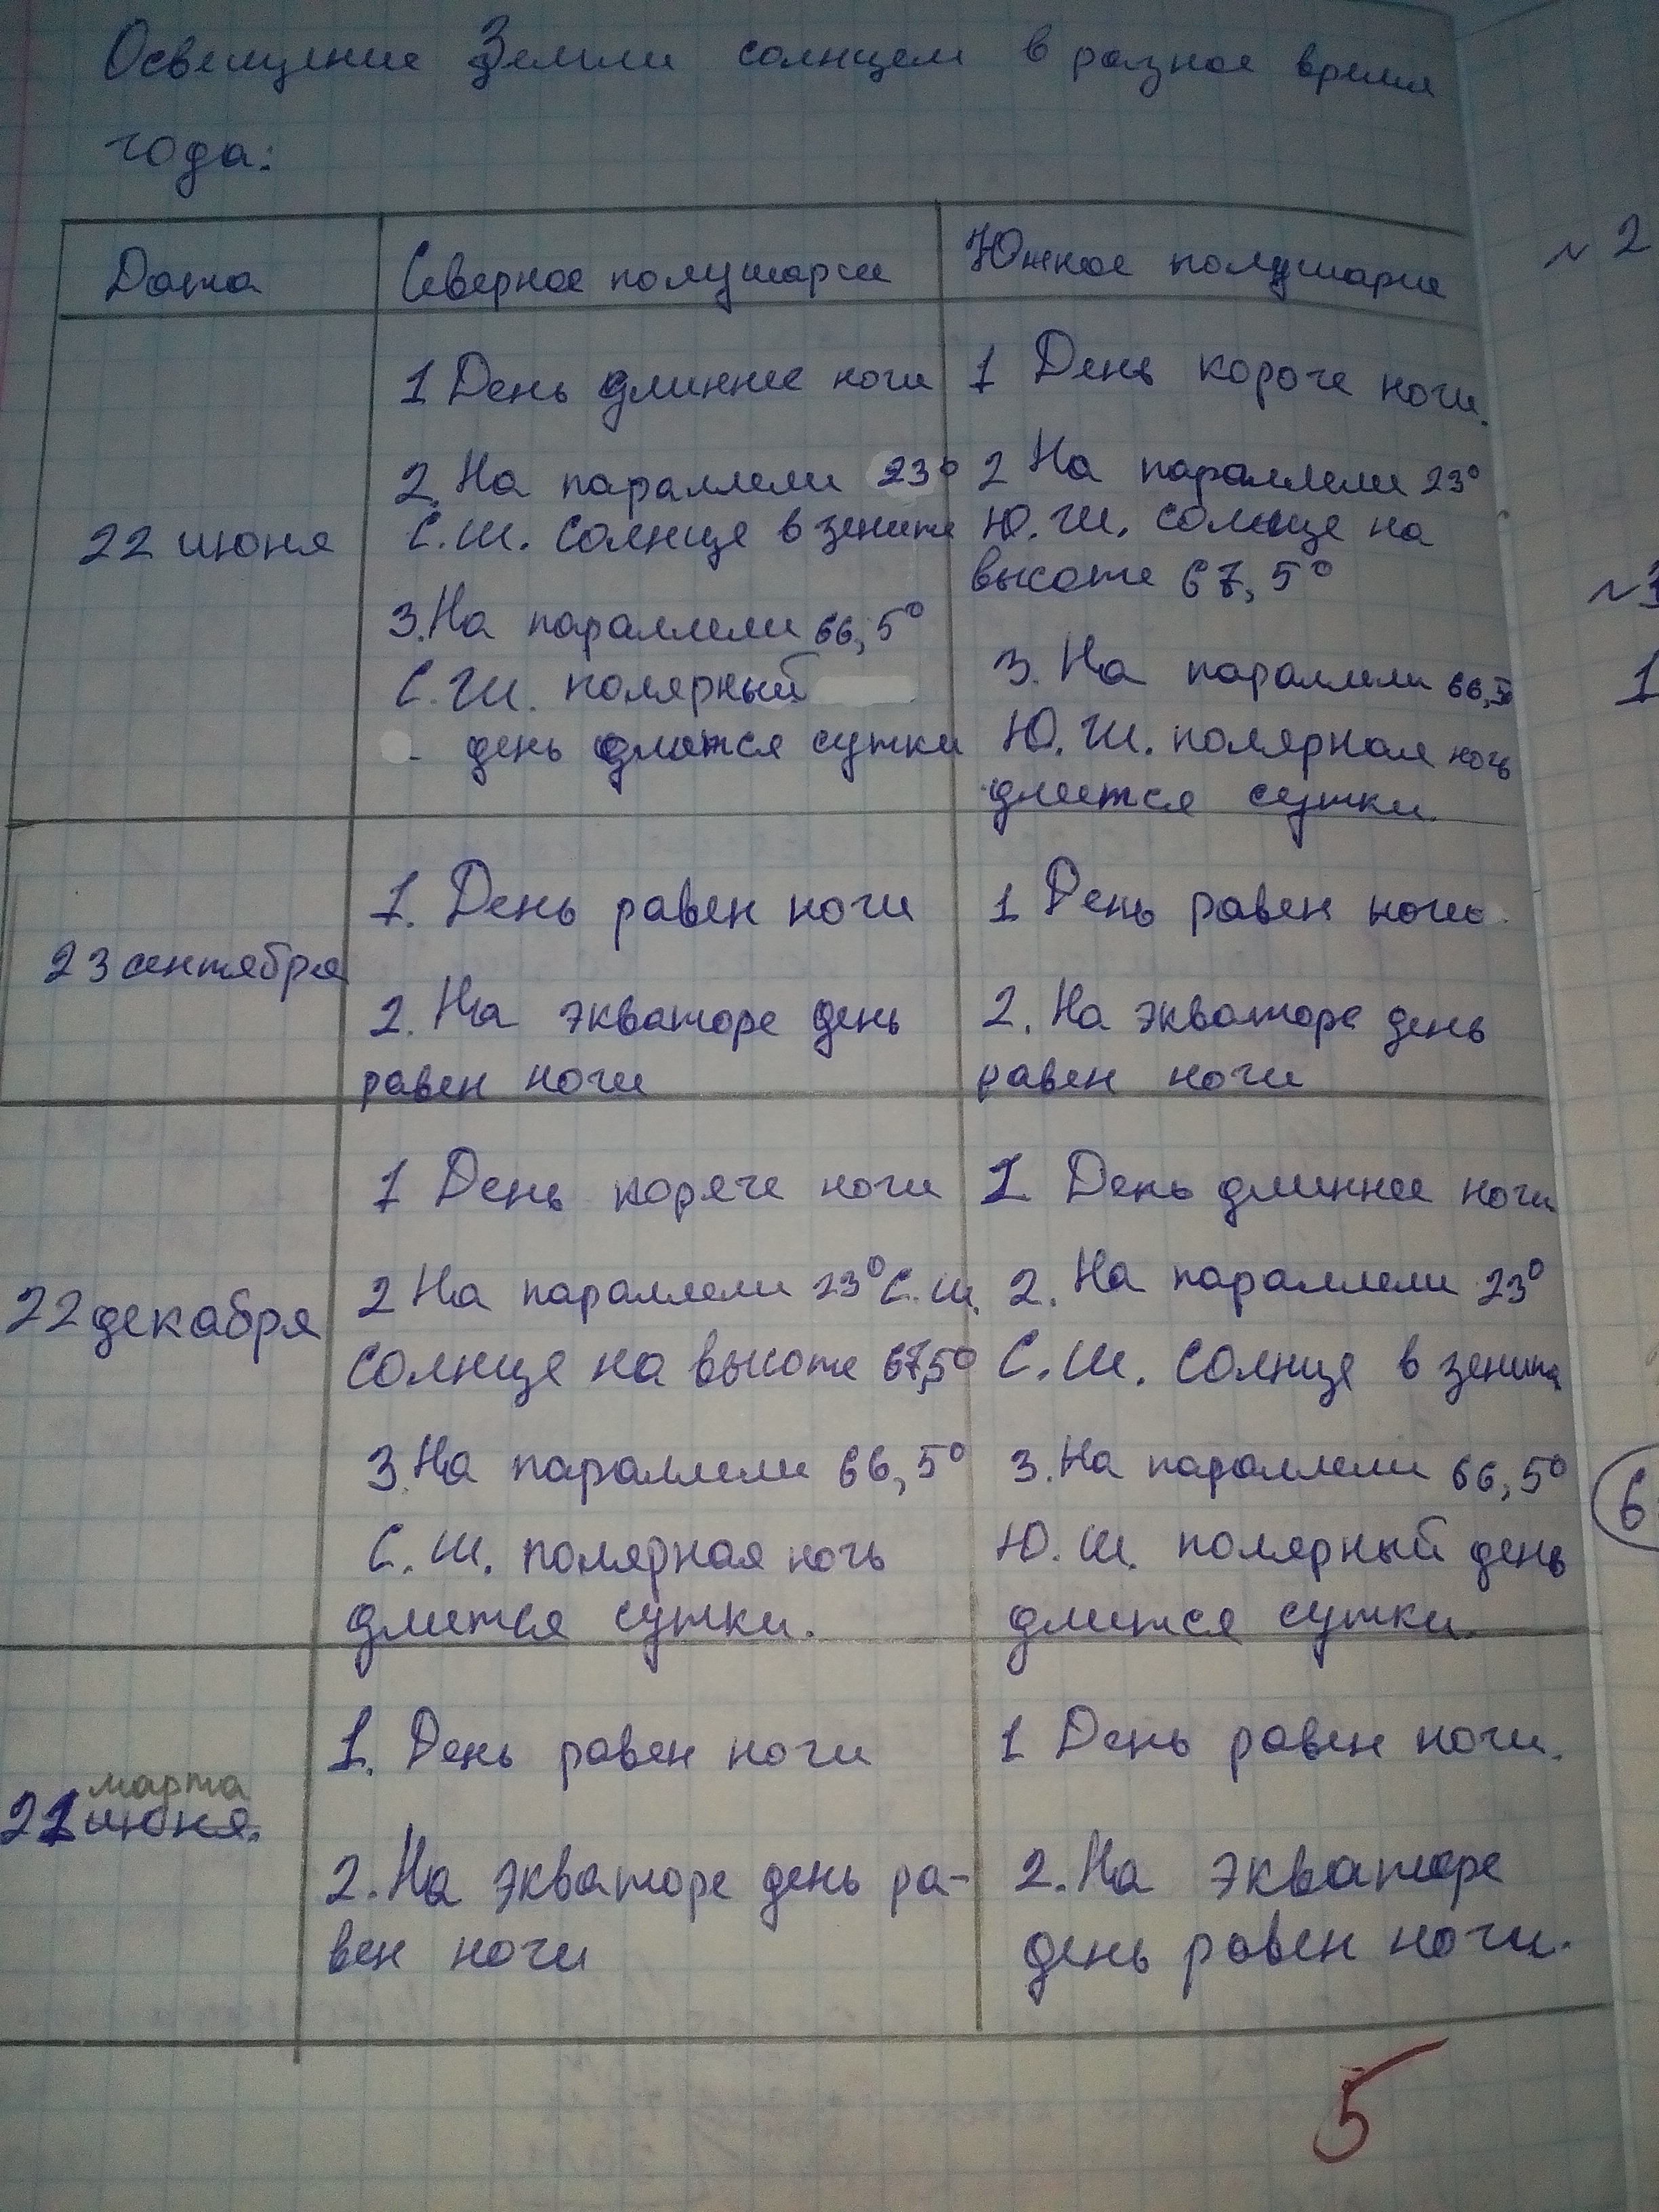 Освещение Земли солнцем в разное время
года:
Дата
Северное полушарие
Южное полушарие
22 июня
1 День длиннее ночи
2. На параллели 23°
С.Ш. солнце в зените
3. На параллели 66,5°
С.Ш. полярный
день длится сутки
1 День короче ночи.
2 На параллели 23°
Ю.Ш. солнце на
высоте 67,5°
3. На параллели 66,5
Ю.Ш. полярная ночь
длится сутки.
23 сентября
1. День равен ночи
2. На экваторе день
равен ночи
1 День равен ночи
2. На экваторе день
равен ночи
22 декабря
1 День короче ночи
2 На параллели 23° С.Ш.
солнце на высоте 67,5°
3. На параллели 66,5°
С.Ш. полярная ночь
длится сутки.
1 День длиннее ночи
2. На параллели 23°
С.Ш. солнце в зените
3. На параллели 66,5°
Ю.Ш. полярный день
длится сутки.
марта
21 июня.
1. День равен ночи
2. На экваторе день ра-
вен ночи
1 День равен ночи.
2. На экваторе
день равен ночи.
5
~ 2
1
6